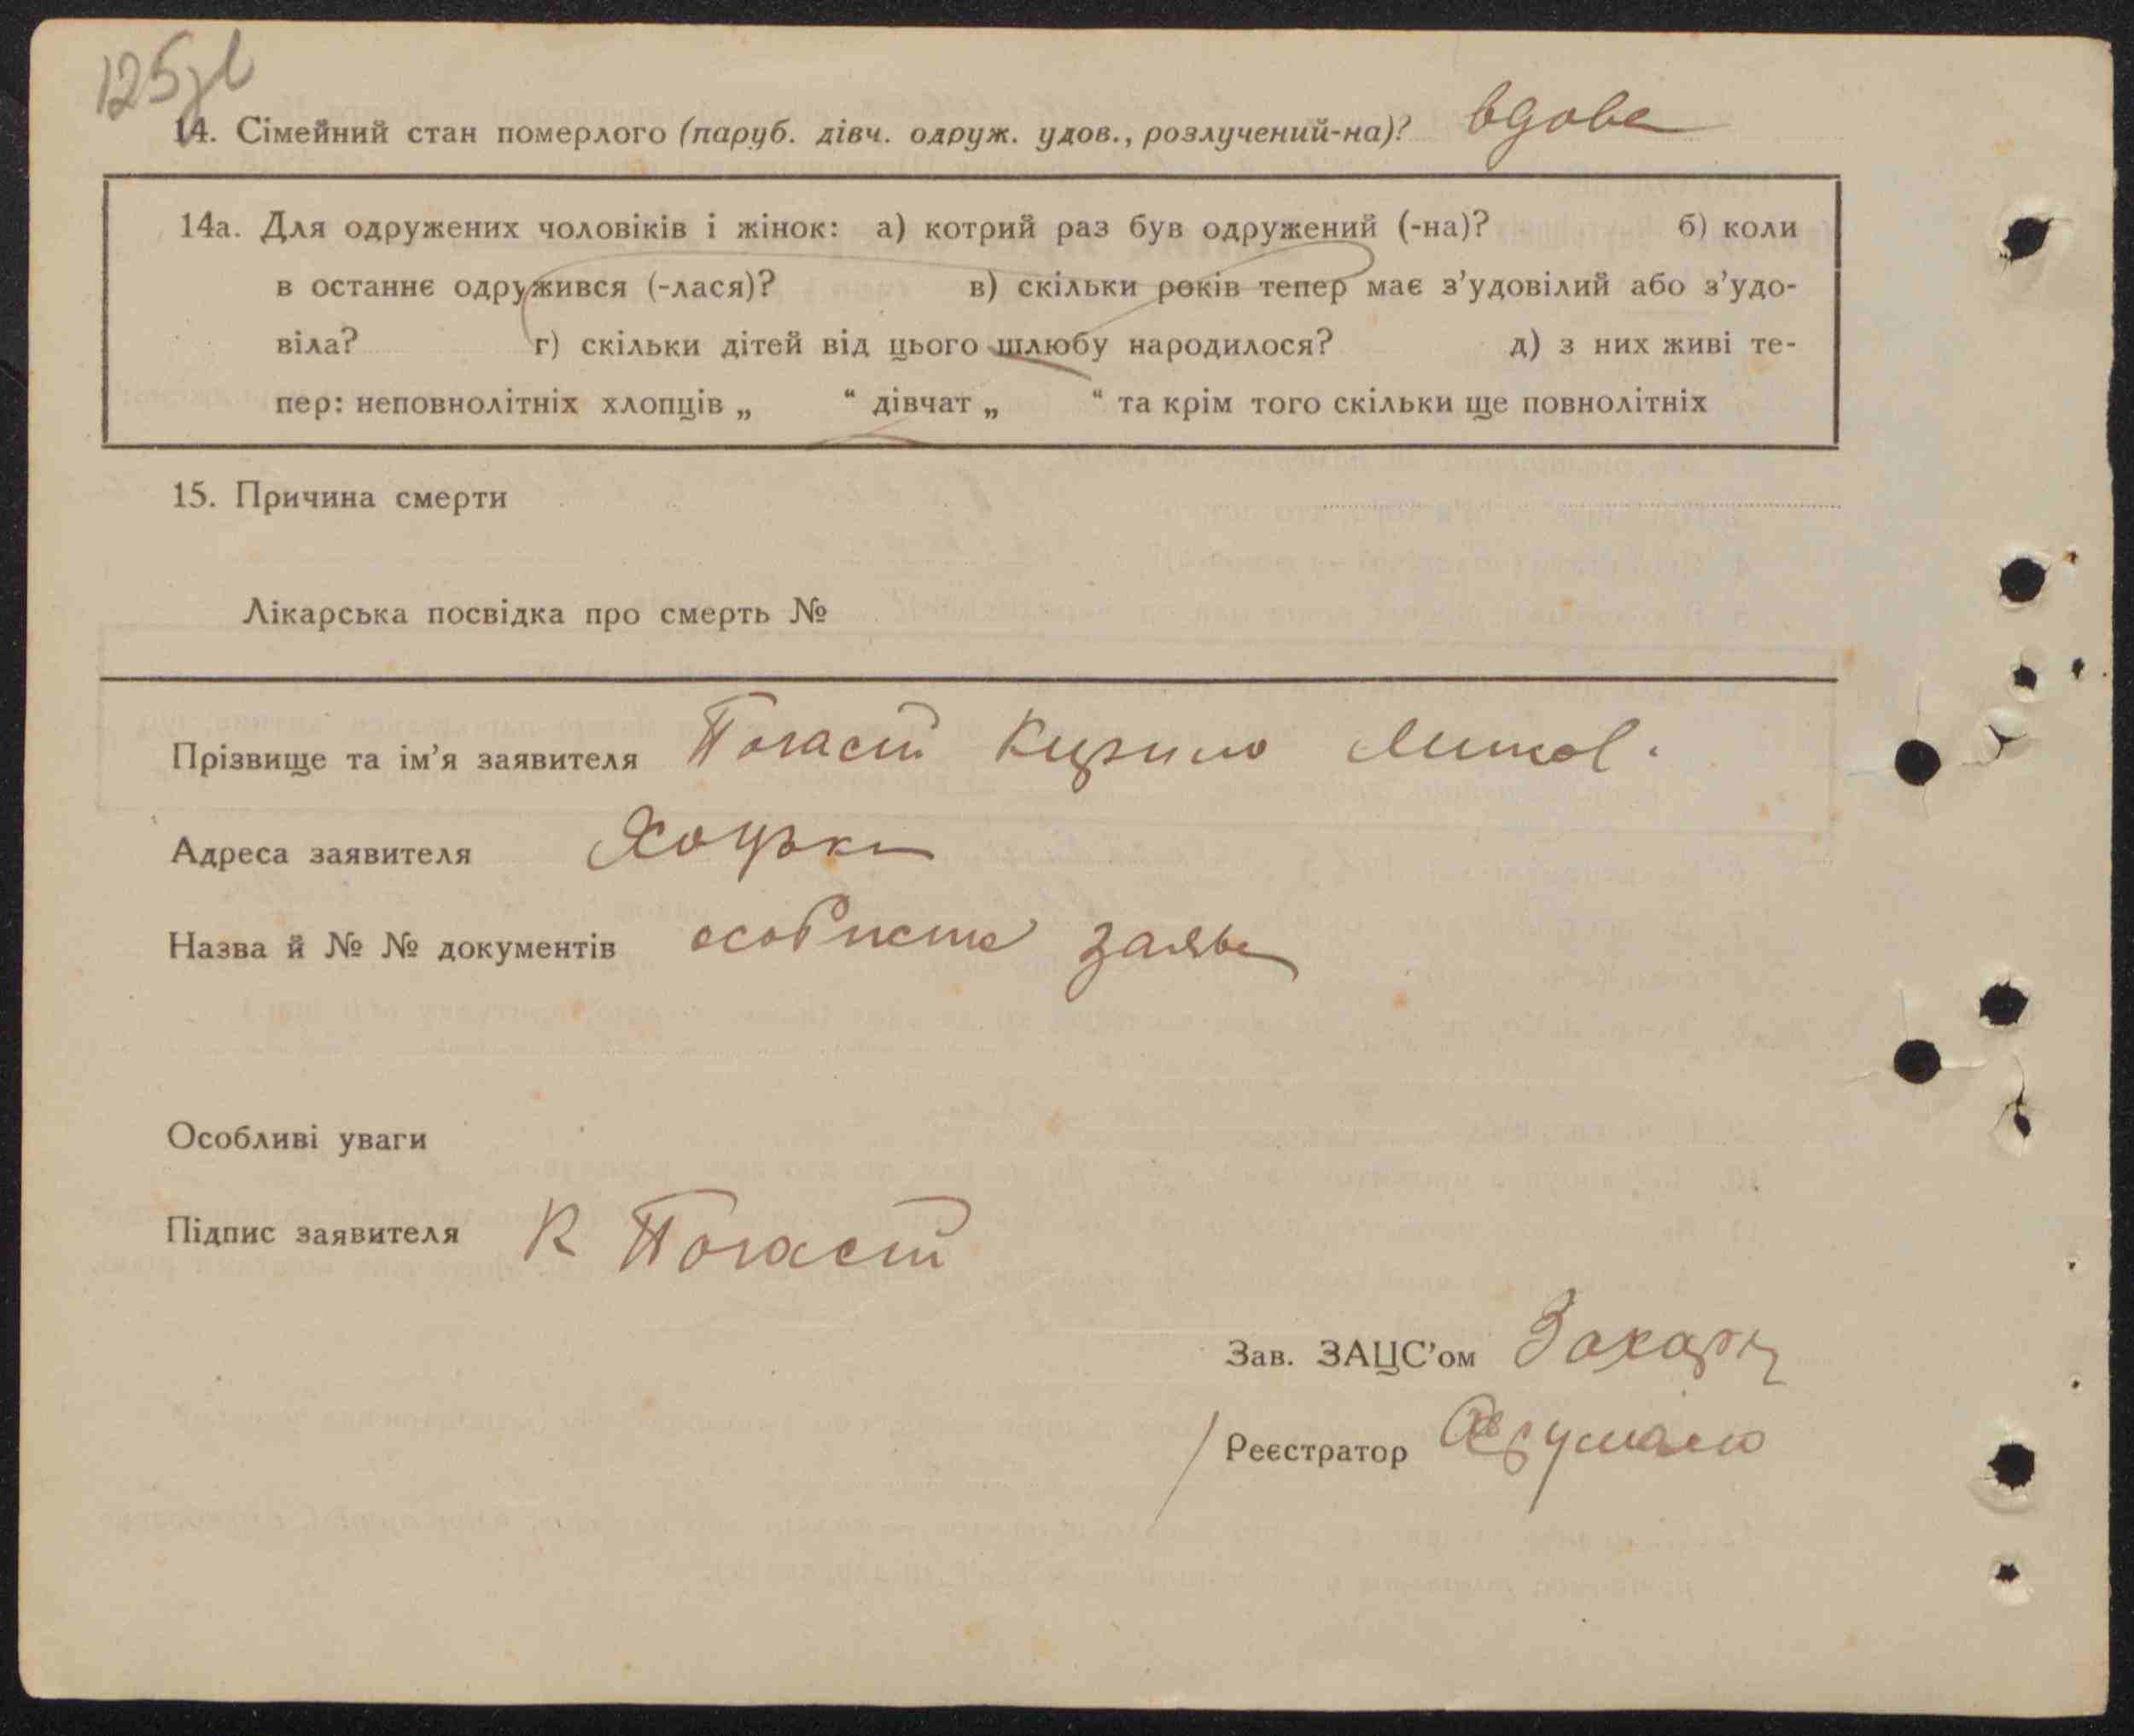 125зв
14. Сімейний стан померлого (паруб. дівч. одруж. удов., розлучений-на)? вдова
14а. Для одружених чоловіків і жінок: а) котрий раз був одружений (-на)? б) коли
в останнє одружився (-лася)? в) скільки років тепер має з’удовілий або з’удо-
віла? г) скільки дітей від цього шлюбу народилося? д) з них живі те-
пер: неповнолітніх хлопців „ “ дівчат „ “ та крім того скільки ще повнолітніх
15. Причина смерти
Лікарська посвідка про смерть №
Прізвище та ім’я заявителя Погаст Кирило
Адреса заявителя Хоцьки
Назва й № № документів особиста заява
Особливі уваги
Підпис заявителя К Погаст
Зав. ЗАЦС’ом
Реєстратор